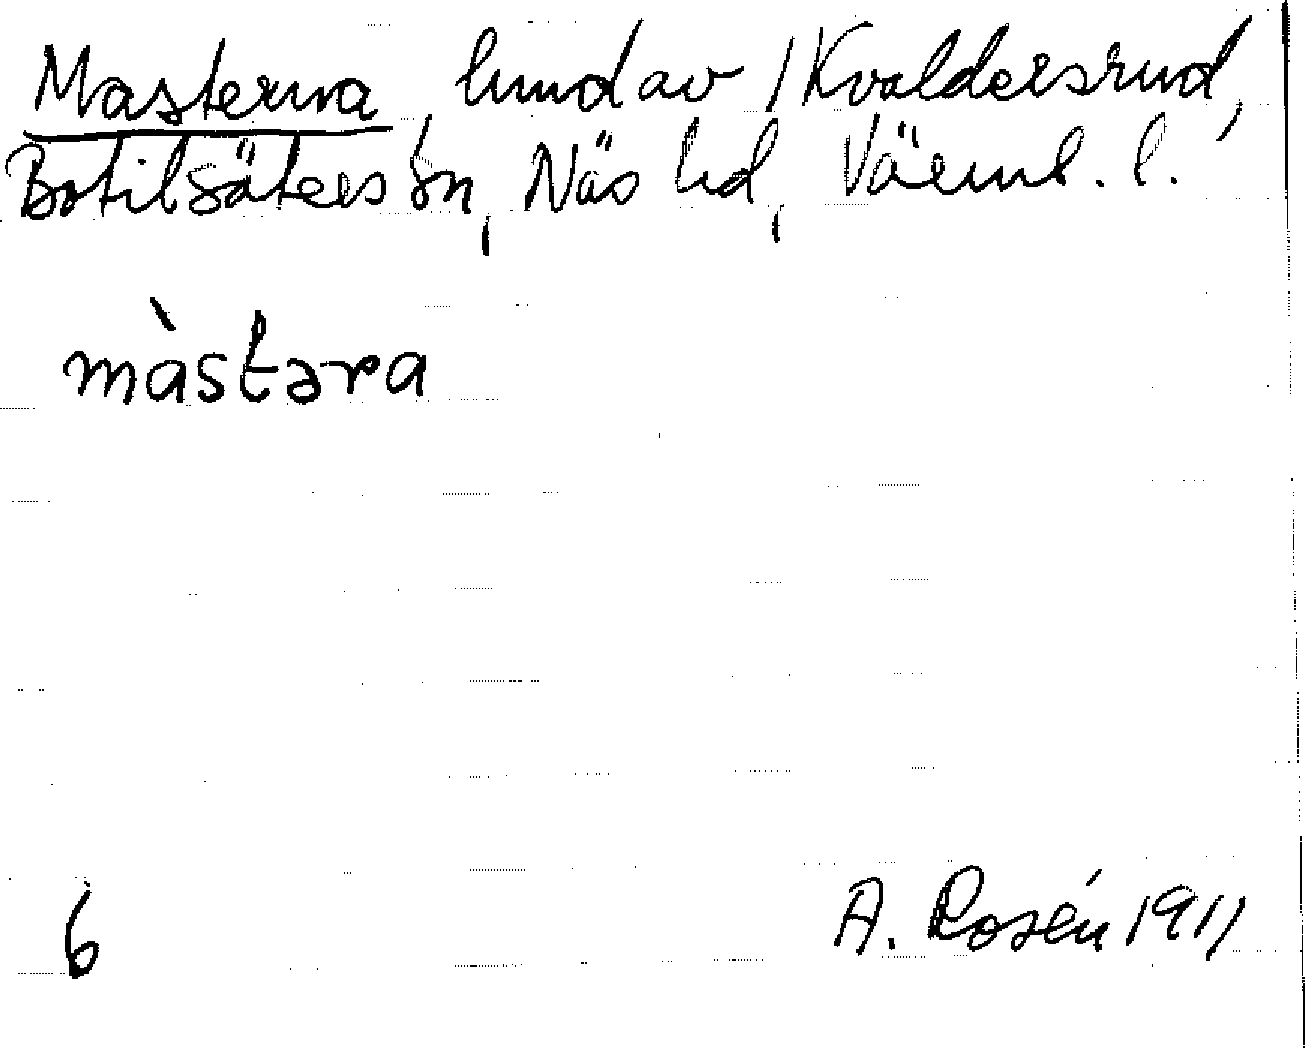 Masterna, hund av / Kvaldersrud,
Botilsäters sn, Näs hd, Värml. l.
màstəra
6
A. Rosén 1911